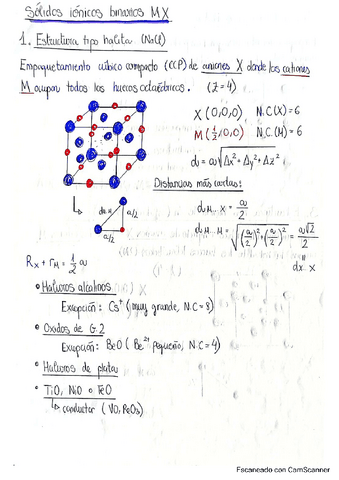 Sólidos iónicos binarios MX
1. Estructura tipo halita (NaCl)
Empaquetamiento cúbico compacto (CCP) de aniones X donde los cationes
M ocupan todos los huecos octaédricos. (Z=4)
X (0,0,0) N.C(X)=6
M(½,0,0) N.C(M)=6
d = a√Δx²+Δy²+Δz²
Distancias más cortas:
a/2
a/2
dM-X = a/2
dM-M = √(a/2)²+(a/2)² = a√2/2
dX-X
Rx + rM = ½ a
• Haluros alcalinos
Excepción: Cs⁺ (muy grande, N.C=8)
• Óxidos de G.2
Excepción: BeO (Be²⁺ pequeño, N.C=4)
• Haluros de plata
• TiO, NiO o FeO
conductor (VO, ReO₃)
Escaneado con CamScanner